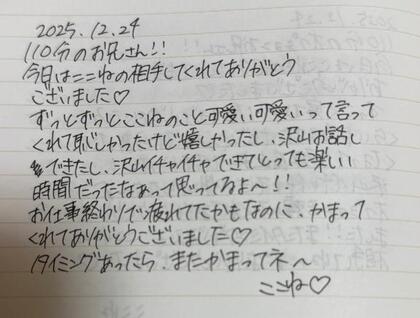 2025.12.24
110分のお兄さん!!
今日はここねの相手してくれてありがとう
ございました♡
ずっとずっとここねのこと可愛い可愛いって言って
くれて恥しかったけど嬉しかったし、沢山お話し
できたし、沢山イチャイチャできてとっても楽しい
時間だったなあって思ってるよ〜!!
お仕事終わりで疲れてたかもなのに、かまって
くれてありがとうございました♡
タイミングあったら、またかまってネ〜
ここね♡